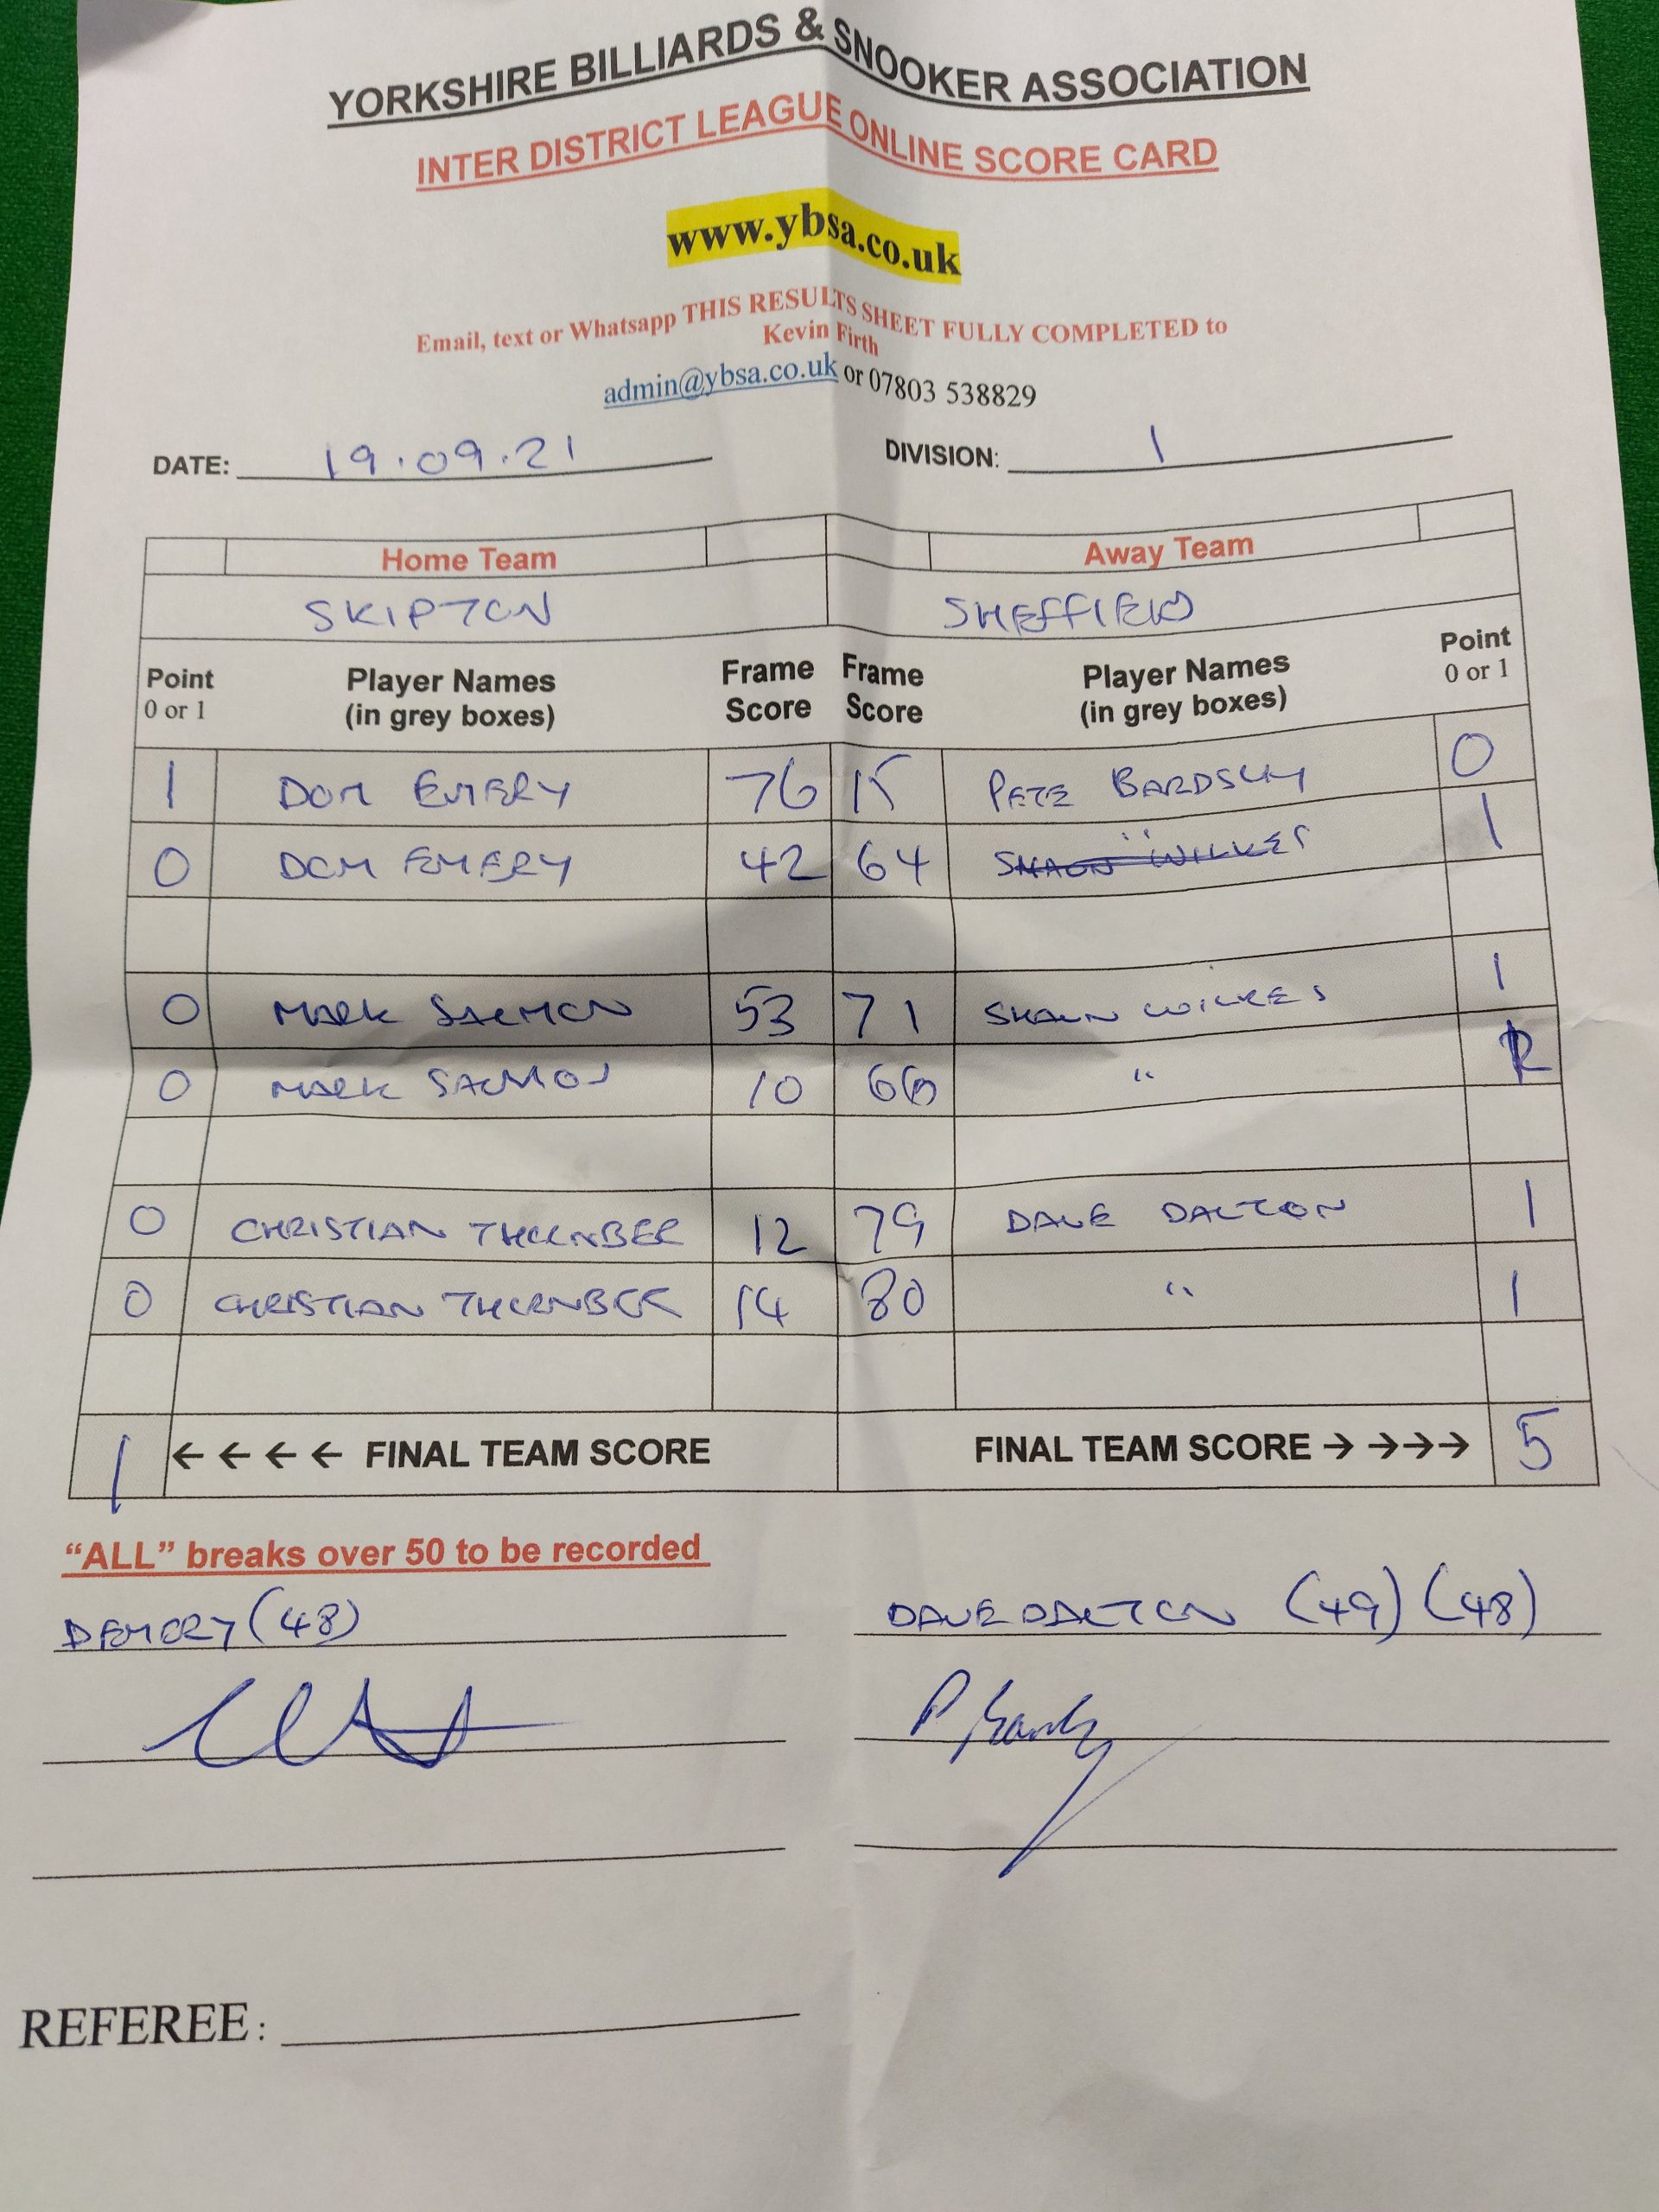 YORKSHIRE BILLIARDS & SNOOKER ASSOCIATION
INTER DISTRICT LEAGUE ONLINE SCORE CARD
www.ybsa.co.uk
Email, text or Whatsapp THIS RESULTS SHEET FULLY COMPLETED to
Kevin Firth
admin@ybsa.co.uk or 07803 538829
DATE: 19.09.21 DIVISION: 1
Home Team Away Team
SKIPTON SHEFFIELD
Point 0 or 1 Player Names (in grey boxes) Frame Score Frame Score Player Names (in grey boxes) Point 0 or 1
1 DOM EMERY 76 15 PETE BARDSLEY 0
0 DOM EMERY 42 64 " SHAUN WILKES 1
0 MARK SALMON 53 71 SHAUN WILKES 1
0 MARK SALMON 10 66 "
0 CHRISTIAN THORNBER 12 79 DAVE DALTON 1
0 CHRISTIAN THORNBER 14 80 " 1
1 ← ← ← ← FINAL TEAM SCORE FINAL TEAM SCORE → →→→ 5
“ALL” breaks over 50 to be recorded
D EMERY (48) DAVE DALTON (49) (48)
REFEREE: